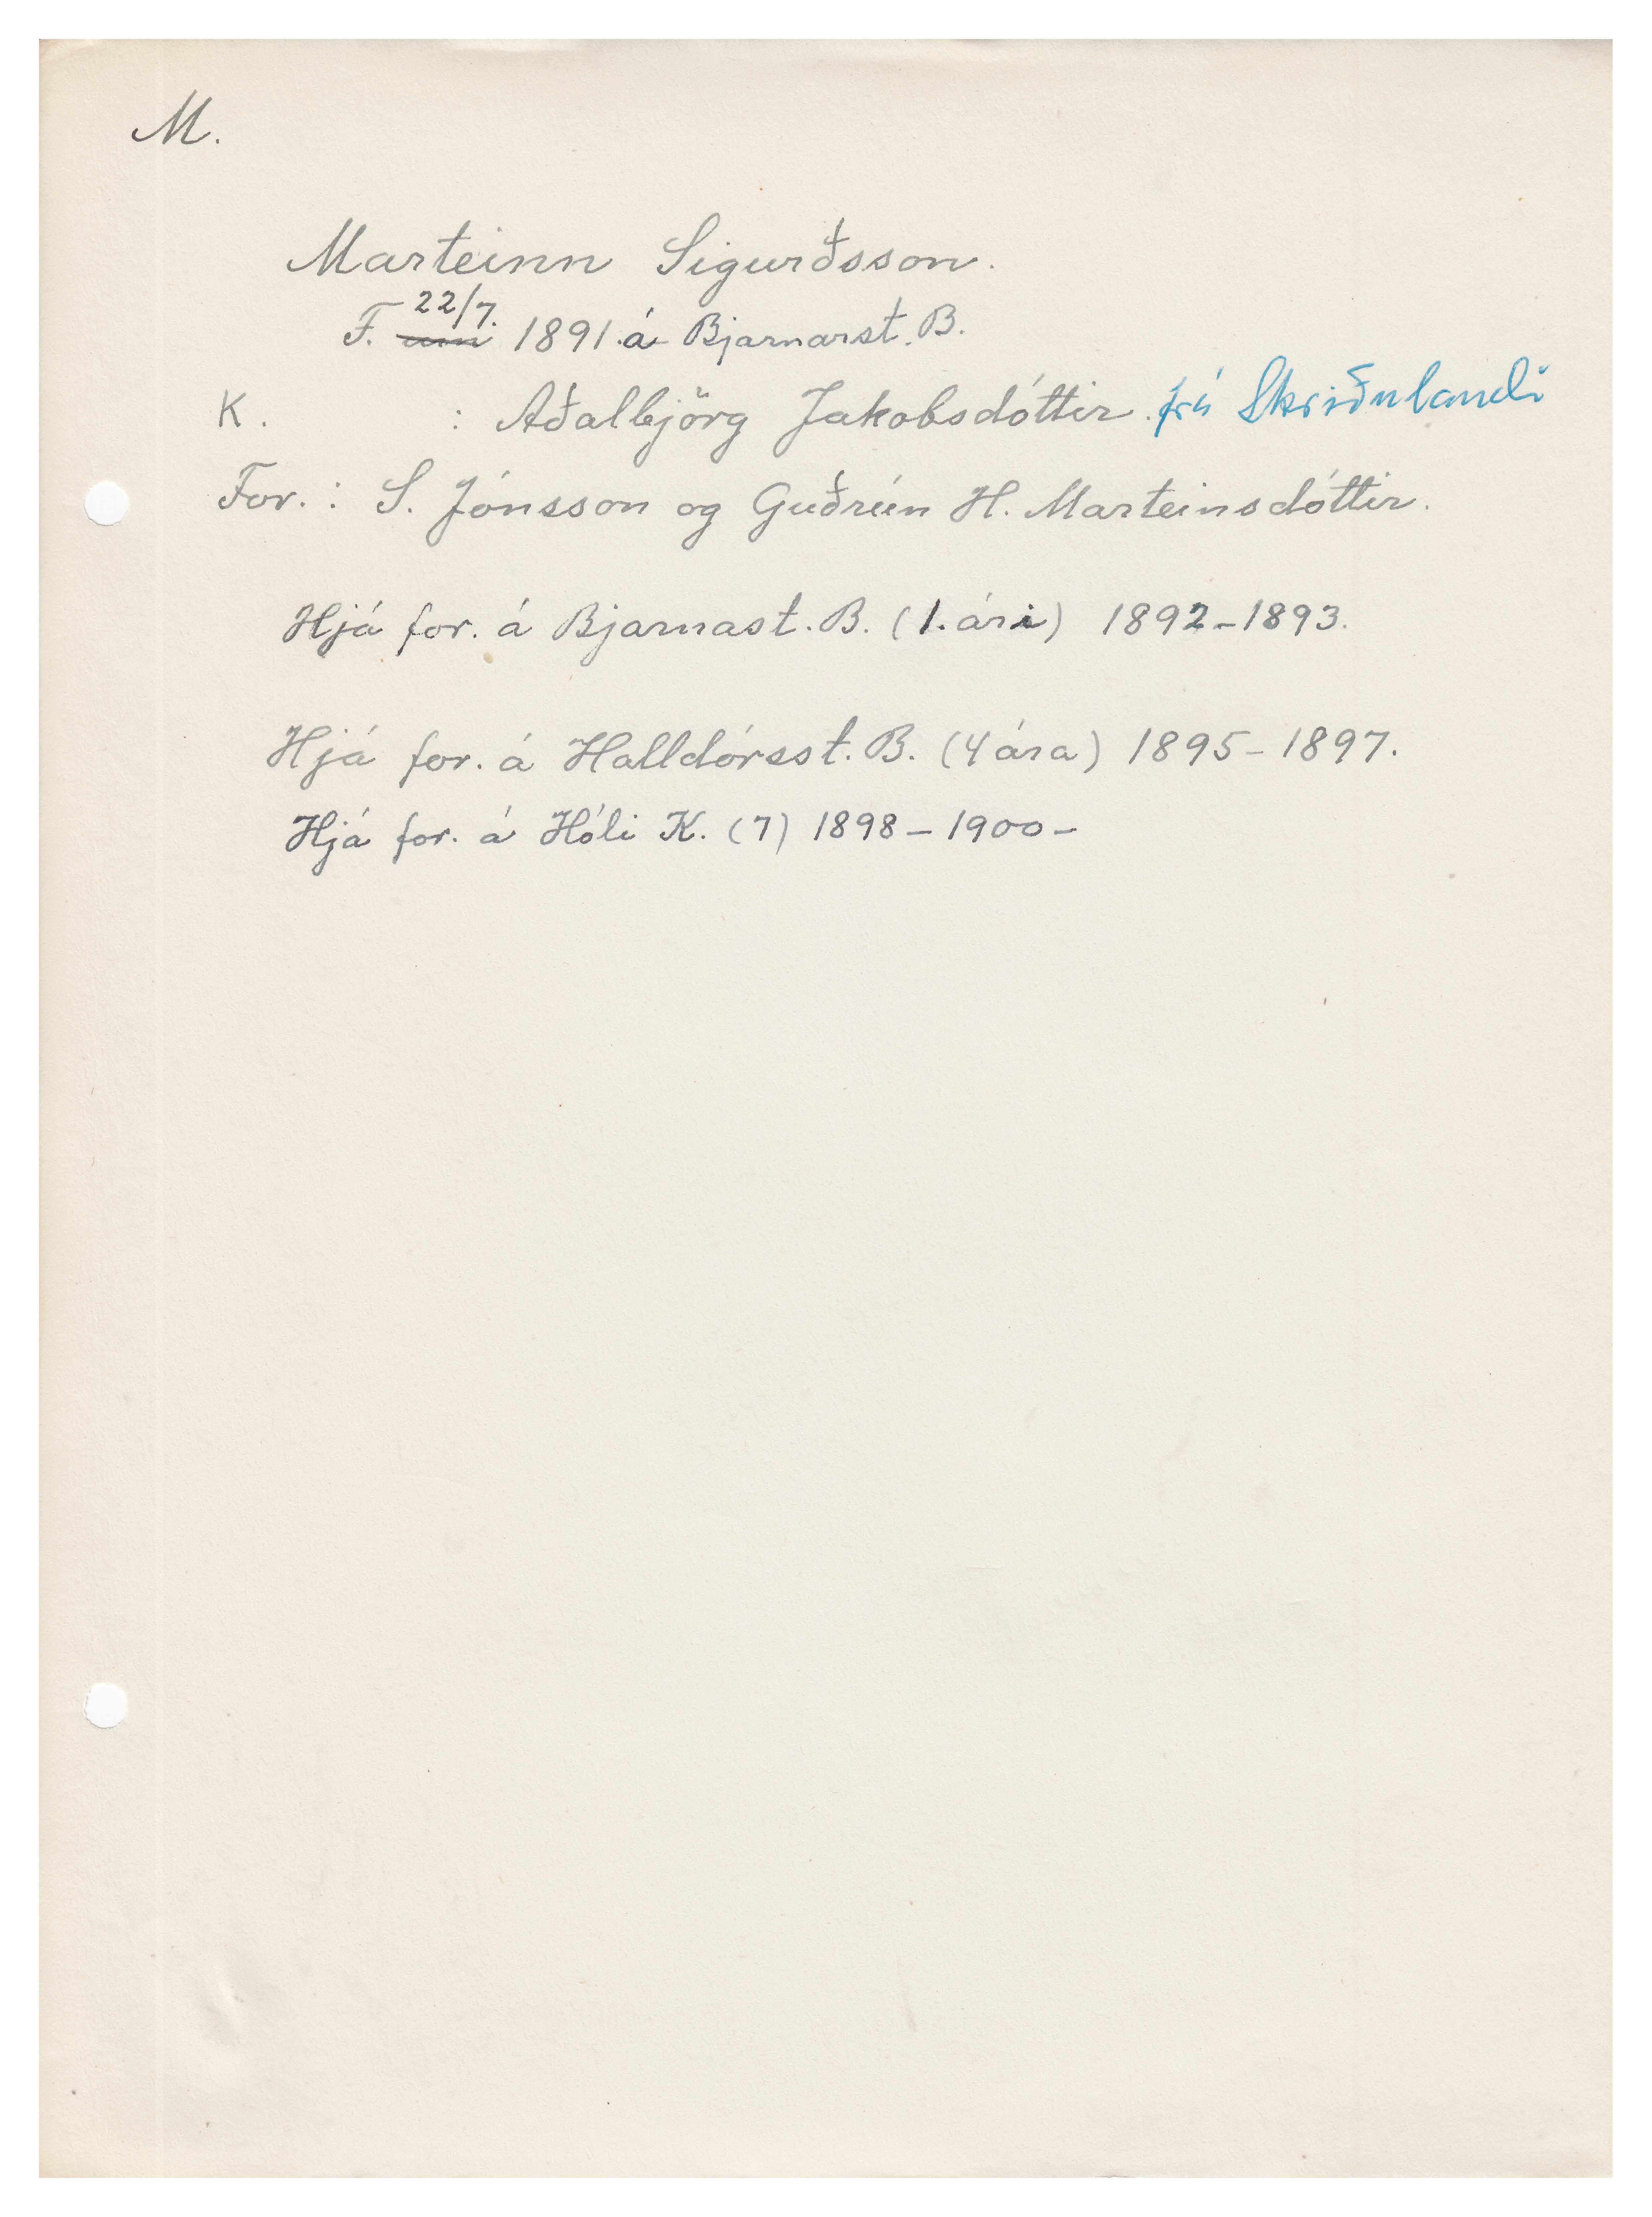 M.
Marteinn Sigurðsson.
F. um 22/7. 1891 á Bjarnarst. B.
K. : Aðalbjörg Jakobsdóttir frá Skriðulandi
For. : S. Jónsson og Guðrún H. Marteinsdóttir.
Hjá for. á Bjarnast. B. (1. ári) 1892-1893.
Hjá for. á Halldórsst. B. (4 ára) 1895-1897.
Hjá for. á Hóli K. (7) 1898-1900-